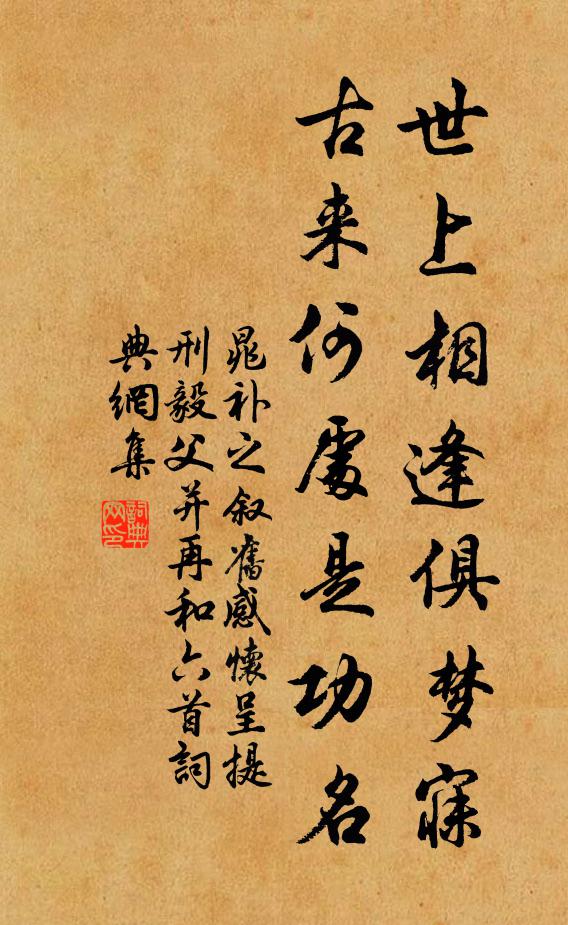 世上相逢俱梦寐
古来何處是功名
晁补之叙舊感懷呈提
刑毅父并再和六首詞
典網集
詞典网印